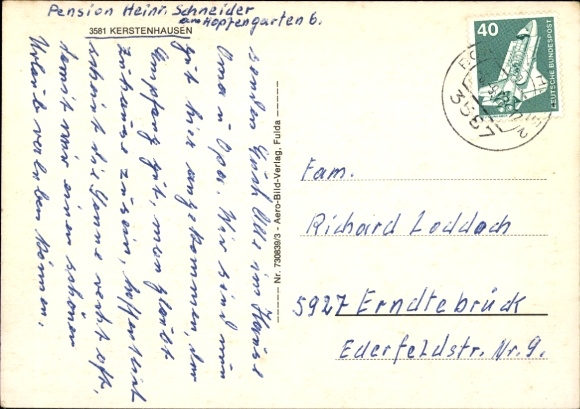 Pension Heinr. Schneider
am Hopfengarten 6.
3581 KERSTENHAUSEN
senden Euch Alle im Hause
Oma u Opa. Wir sind nun
gut hier angekommen, der
Empfang gut, man glaubt
zuhause zu sein, hoffentlich
scheint die Sonne recht oft,
damit wir einen schönen
Urlaub verleben können.
Nr. 730839/3 - Aero-Bild-Verlag, Fulda
40
DEUTSCHE BUNDESPOST
3587
Fam.
Richard Loddach
5927 Erndtebrück
Ederfeldstr. Nr. 9.